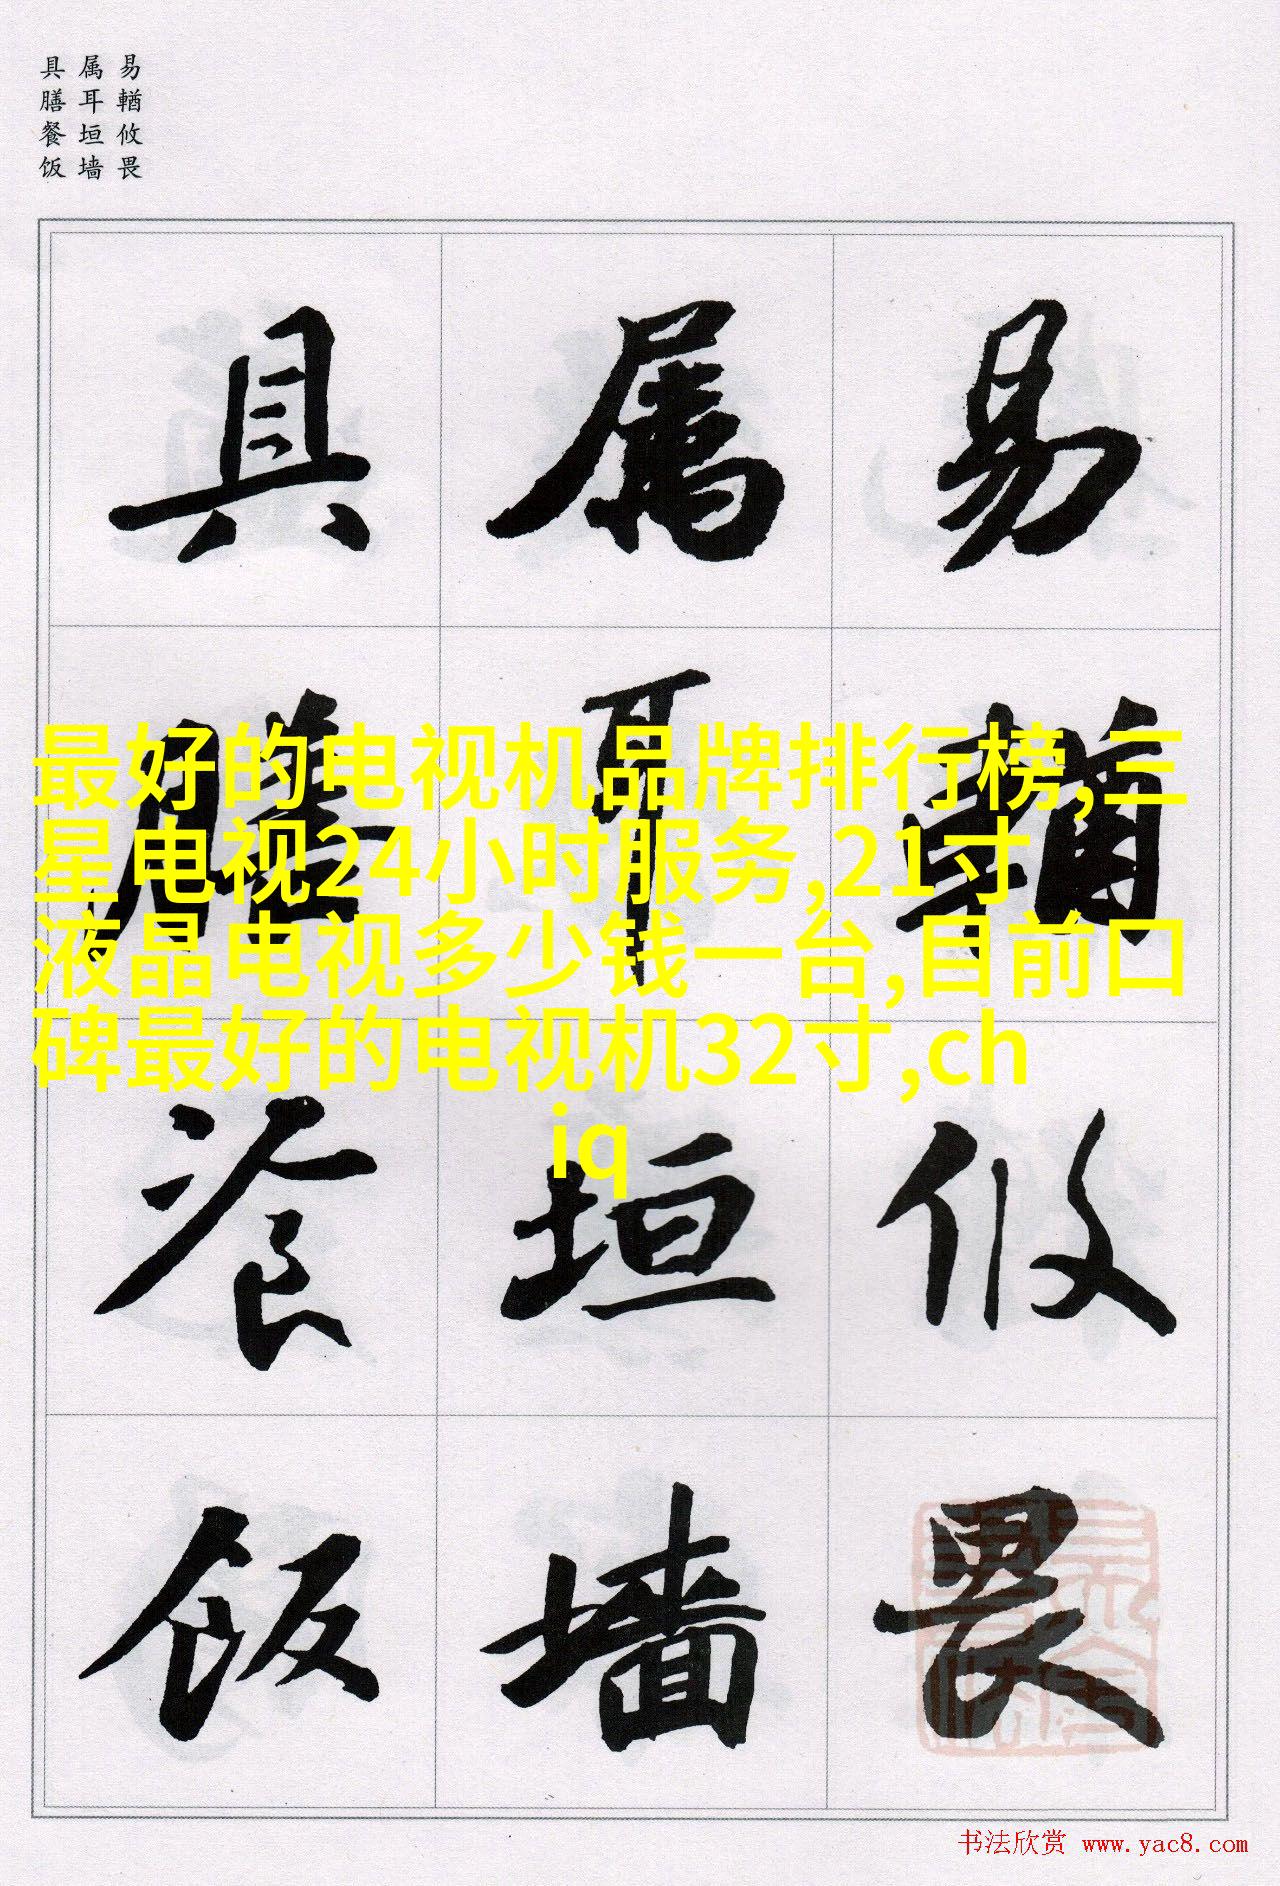 易輶攸畏
属耳垣墙
具膳餐饭
易属具
輶耳膳
攸垣餐
畏墙饭
最好的电视机品牌排行榜,三
星电视24小时服务,21寸
液晶电视多少钱一台,目前口
碑最好的电视机32寸,ch
iq
书法欣赏 www.yac8.com